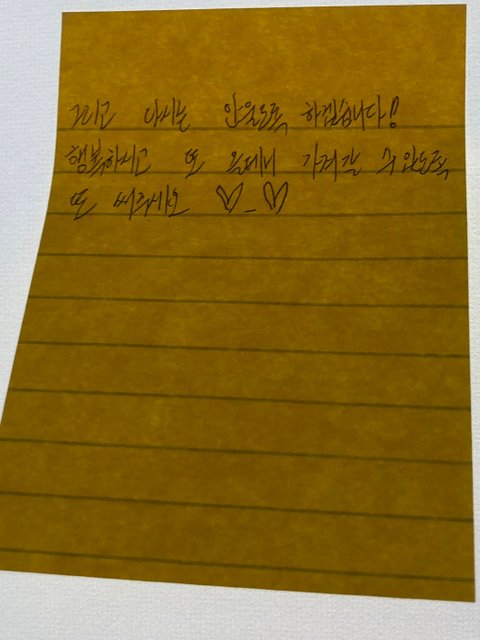 그리고 다시는 안울도록 하겠습니다!
행복하시고 또 올테니 가져갈 수 있도록
또 써주세요 ♡_♡